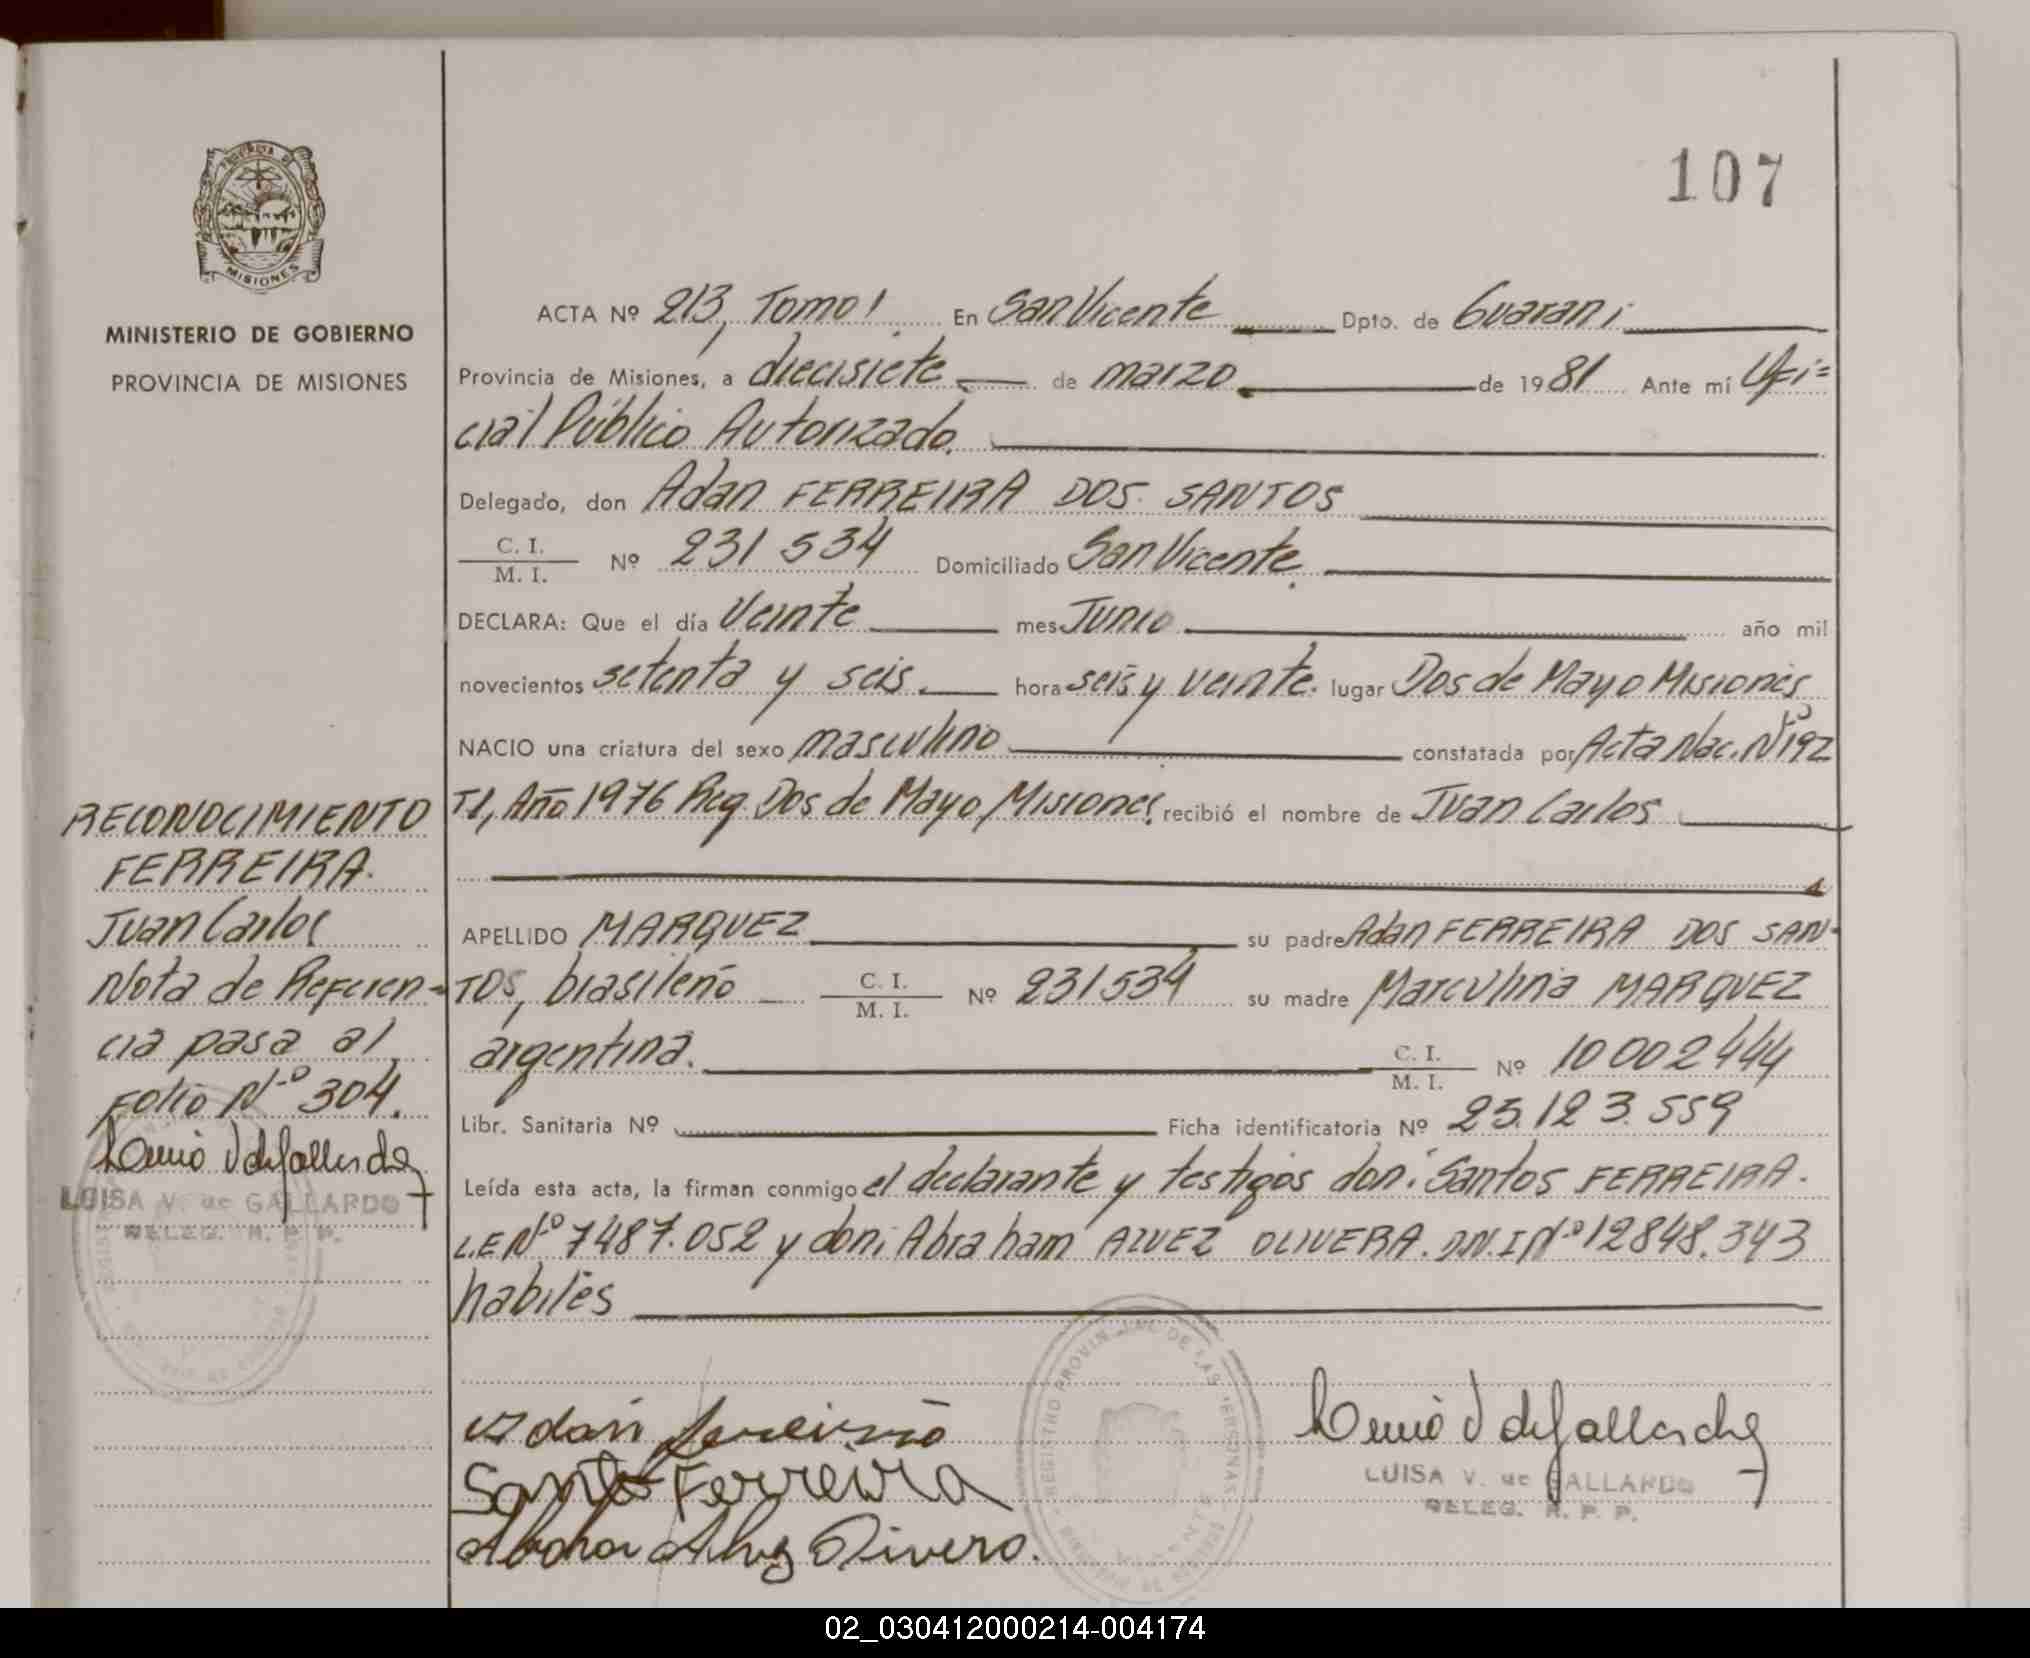 107
PROVINCIA DE
MISIONES
MINISTERIO DE GOBIERNO
PROVINCIA DE MISIONES
ACTA Nº 213, Tomo I En San Vicente Dpto. de Guarani
Provincia de Misiones, a diecisiete de marzo de 1981 Ante mí Ofi=
cial Público Autorizado.
Delegado, don Adan FERREIRA DOS SANTOS
C. I.
M. I. Nº 231534 Domiciliado San Vicente.
DECLARA: Que el día Veinte mes Junio año mil
novecientos setenta y seis. hora seis y veinte. lugar Dos de Mayo Misiones
NACIO una criatura del sexo masculino constatada por Acta Nac. Nº 192
T I, Año 1976 Reg. Dos de Mayo, Misiones. recibió el nombre de Juan Carlos
APELLIDO MARQUEZ su padre Adan FERREIRA DOS SAN-
TOS, brasileño C. I.
M. I. Nº 231534 su madre Marculina MARQUEZ
argentina. C. I.
M. I. Nº 10002444
Libr. Sanitaria Nº Ficha identificatoria Nº 25.123.559
Leída esta acta, la firman conmigo el declarante y testigos don: Santos FERREIRA.
L.E Nº 7487.052 y don: Abraham ALVEZ OLIVERA. D.N.I Nº 12848.343
habiles
RECONOCIMIENTO
FERREIRA.
Juan Carlos
Nota de Referen-
cia pasa al
Folio Nº 304.
LUISA V. de GALLARDO
DELEG. R. P. P.
Santos Ferreira
REGISTRO PROVINCIAL DE LAS PERSONAS
LUISA V. de GALLARDO
DELEG. R. P. P.
02_030412000214-004174